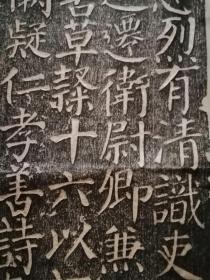 烈有清識吏
遷衛尉卿兼
善草隸十六以
闕疑仁孝善詩